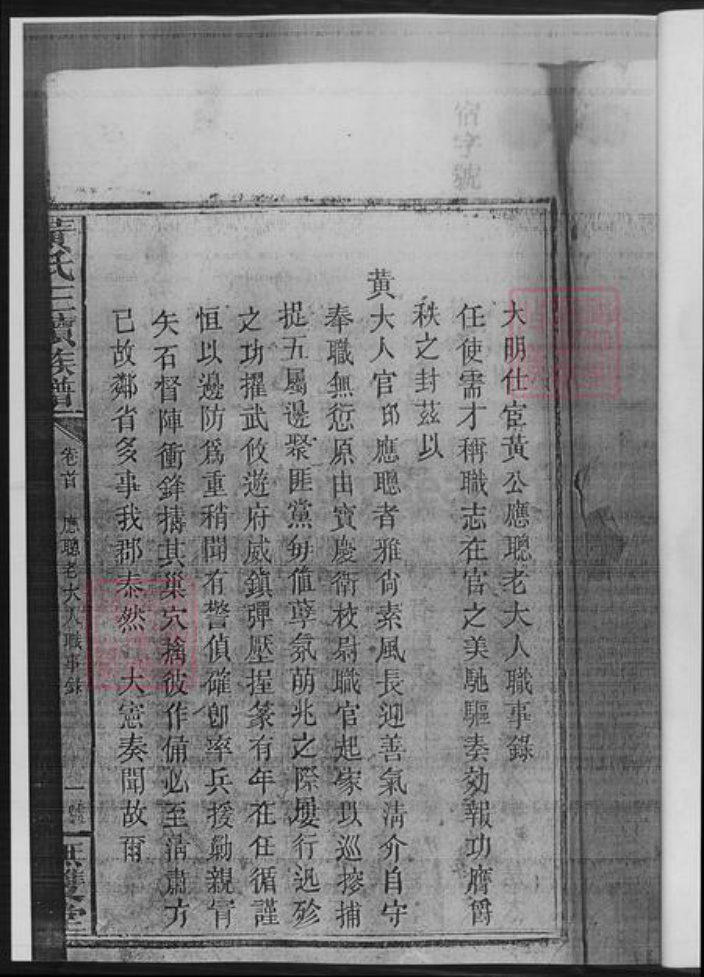 宿字號
大明仕宦黃公應聰老大人職事錄
任使需才稱職志在官之美馳驅奏効報功膺爵
秩之封茲以
黃大人官印應聰者雅尙素風長迎善氣淸介自守
奉職無愆原由寶慶衛校尉職官起家以巡捕
提五屬邊聚匪黨每值孽氛萌兆之際屢行迅殄
之功擢武攸遊府威鎮彈壓握篆有年在任循謹
恒以邊防爲重稍聞有警偵確卽率兵援勦親冒
矢石督陣衝鋒擣其巢穴擒彼作俑必至清肅方
已故鄰省多事我郡泰然 大憲奏聞故爾
黃氏三續族譜
卷首 應聰老大人職事錄
一
無雙堂